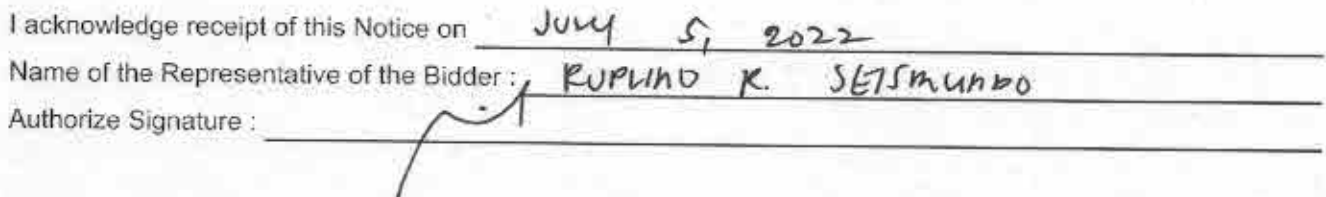 I acknowledge receipt of this Notice on July 5, 2022
Name of the Representative of the Bidder : R. SEISMUNDO
Authorize Signature :